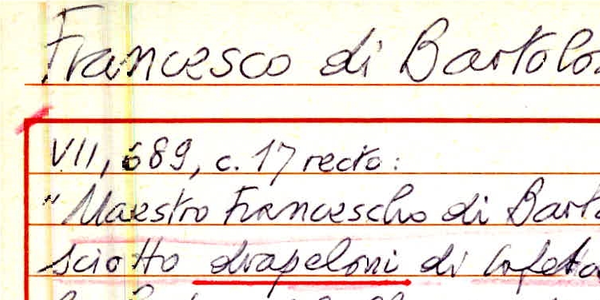 Francesco di Bartolo
VII, 689, c. 17 recto:
"Maestro Francescho di Barto
sciotto drapeloni di